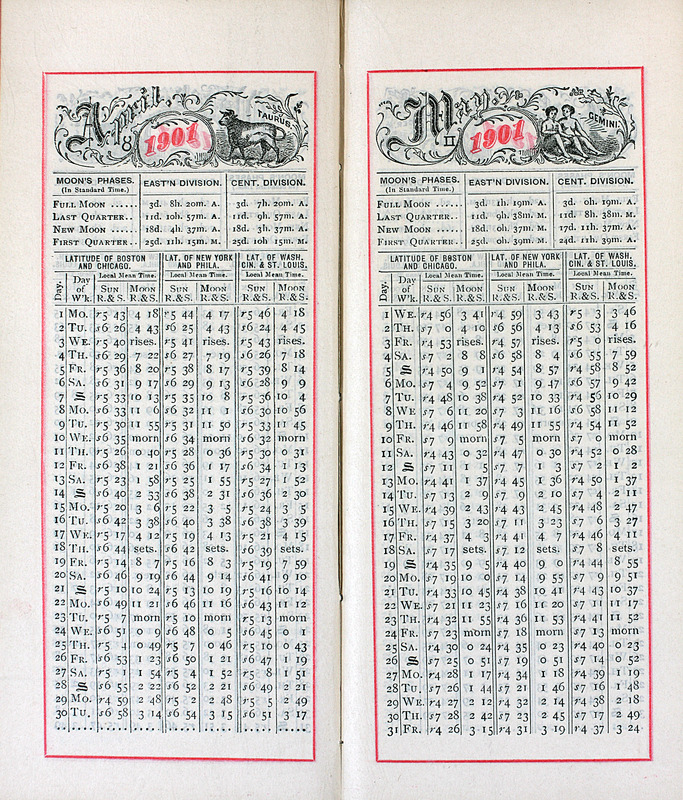 April.
1901
TAURUS.
MOON'S PHASES.
(In Standard Time.)
EAST'N DIVISION.
CENT. DIVISION.
FULL MOON ...... 3d. 8h. 20m. A. 3d. 7h. 20m. A.
LAST QUARTER.. 11d. 10h. 57m. A. 11d. 9h. 57m. A.
NEW MOON ...... 18d. 4h. 37m. A. 18d. 3h. 37m. A.
FIRST QUARTER.. 25d. 11h. 15m. M. 25d. 10h. 15m. M.
LATITUDE OF BOSTON AND CHICAGO.
LAT. OF NEW YORK AND PHILA.
LAT. OF WASH. CIN. & ST. LOUIS.
Local Mean Time. Local Mean Time. Local Mean Time.
Day. Day of W'k. SUN R.&S. MOON R.&S. SUN R.&S. MOON R.&S. SUN R.&S. MOON R.&S.
1 MO. r5 43 4 18 r5 44 4 17 r5 46 4 18
2 TU. s6 26 4 43 s6 25 4 43 s6 24 4 45
3 WE. r5 40 rises. r5 41 rises. r5 43 rises.
4 TH. s6 29 7 22 s6 27 7 19 s6 26 7 18
5 FR. r5 36 8 20 r5 38 8 17 r5 39 8 14
6 SA. s6 31 9 17 s6 29 9 13 s6 28 9 9
7 S r5 33 10 13 r5 35 10 8 r5 36 10 4
8 MO. s6 33 11 6 s6 32 11 1 s6 30 10 56
9 TU. r5 30 11 55 r5 31 11 50 r5 33 11 45
10 WE. s6 35 morn s6 34 morn s6 32 morn
11 TH. r5 26 0 40 r5 28 0 36 r5 30 0 31
12 FR. s6 38 1 21 s6 36 1 17 s6 34 1 13
13 SA. r5 23 1 58 r5 25 1 55 r5 27 1 52
14 S s6 40 2 33 s6 38 2 31 s6 36 2 30
15 MO. r5 20 3 6 r5 22 3 5 r5 24 3 5
16 TU. s6 42 3 38 s6 40 3 38 s6 38 3 39
17 WE. r5 17 4 12 r5 19 4 13 r5 21 4 15
18 TH. s6 44 sets. s6 42 sets. s6 39 sets.
19 FR. r5 14 8 7 r5 16 8 3 r5 18 7 59
20 SA. s6 46 9 19 s6 44 9 14 s6 41 9 10
21 S r5 10 10 24 r5 13 10 19 r5 16 10 14
22 MO. s6 49 11 21 s6 46 11 16 s6 43 11 12
23 TU. r5 7 morn r5 10 morn r5 13 morn
24 WE. s6 51 0 9 s6 48 0 5 s6 45 0 1
25 TH. r5 4 0 49 r5 7 0 46 r5 10 0 43
26 FR. s6 53 1 23 s6 50 1 21 s6 47 1 19
27 SA. r5 1 1 54 r5 4 1 52 r5 8 1 51
28 S s6 55 2 22 s6 52 2 21 s6 49 2 21
29 MO. r4 59 2 48 r5 2 2 48 r5 5 2 49
30 TU. s6 58 3 14 s6 54 3 15 s6 51 3 17
May.
1901
GEMINI.
MOON'S PHASES.
(In Standard Time.)
EAST'N DIVISION.
CENT. DIVISION.
FULL MOON ...... 3d. 1h. 19m. A. 3d. 0h. 19m. A.
LAST QUARTER.. 11d. 9h. 38m. M. 11d. 8h. 38m. M.
NEW MOON ...... 18d. 0h. 37m. M. 17d. 11h. 37m. A.
FIRST QUARTER.. 25d. 0h. 39m. M. 24d. 11h. 39m. A.
LATITUDE OF BOSTON AND CHICAGO.
LAT. OF NEW YORK AND PHILA.
LAT. OF WASH. CIN. & ST. LOUIS.
Local Mean Time. Local Mean Time. Local Mean Time.
Day. Day of W'k. SUN R.&S. MOON R.&S. SUN R.&S. MOON R.&S. SUN R.&S. MOON R.&S.
1 WE. r4 56 3 41 r4 59 3 43 r5 3 3 46
2 TH. s7 0 4 10 s6 56 4 13 s6 53 4 16
3 FR. r4 53 rises. r4 57 rises. r5 0 rises.
4 SA. s7 2 8 8 s6 58 8 4 s6 55 7 59
5 S r4 50 9 1 r4 54 8 57 r4 58 8 52
6 MO. s7 4 9 52 s7 1 9 47 s6 57 9 42
7 TU. r4 48 10 38 r4 52 10 33 r4 56 10 29
8 WE s7 6 11 20 s7 3 11 16 s6 58 11 12
9 TH. r4 46 11 58 r4 49 11 55 r4 54 11 52
10 FR. s7 9 morn s7 5 morn s7 0 morn
11 SA. r4 43 0 32 r4 47 0 30 r4 52 0 28
12 S s7 11 1 5 s7 7 1 3 s7 2 1 2
13 MO. r4 41 1 37 r4 45 1 36 r4 50 1 37
14 TU. s7 13 2 9 s7 9 2 10 s7 4 2 11
15 WE. r4 39 2 43 r4 43 2 45 r4 48 2 47
16 TH. s7 15 3 20 s7 11 3 23 s7 6 3 27
17 FR. r4 37 4 3 r4 41 4 7 r4 46 4 11
18 SA. s7 17 sets. s7 12 sets. s7 8 sets.
19 S r4 35 9 5 r4 40 9 0 r4 44 8 55
20 MO. s7 19 10 0 s7 14 9 55 s7 9 9 51
21 TU. r4 33 10 45 r4 38 10 41 r4 43 10 37
22 WE. s7 21 11 23 s7 16 11 20 s7 11 11 17
23 TH. r4 32 11 55 r4 36 11 53 r4 41 11 52
24 FR. s7 23 morn s7 18 morn s7 13 morn
25 SA. r4 30 0 24 r4 35 0 23 r4 40 0 23
26 S s7 25 0 51 s7 19 0 51 s7 14 0 52
27 MO. r4 28 1 17 r4 34 1 18 r4 39 1 19
28 TU. s7 26 1 44 s7 21 1 46 s7 16 1 48
29 WE. r4 27 2 12 r4 32 2 14 r4 38 2 18
30 TH. s7 28 2 42 s7 23 2 45 s7 17 2 49
31 FR. r4 26 3 15 r4 31 3 19 r4 37 3 24